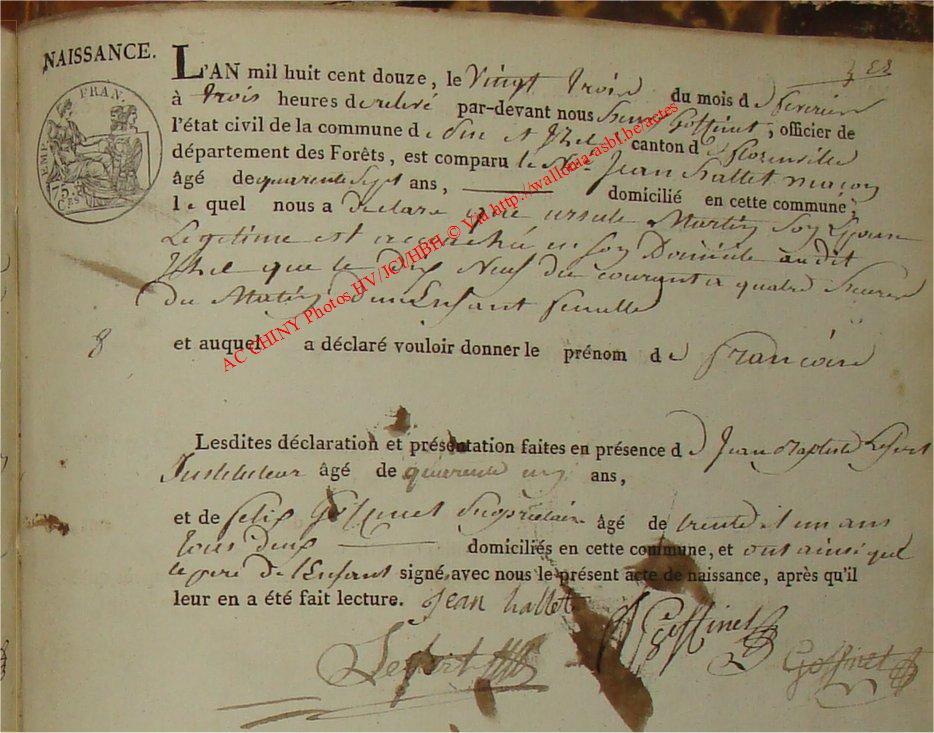 NAISSANCE.
EMP. FRAN.
75
CES
L'AN mil huit cent douze, le Vingt trois du mois de fevrier
à trois heures de relevé par-devant nous Goffinet, officier de
l'état civil de la commune de et Izel canton de florenville
département des Forêts, est comparu le Né Jean hallet maçon
âgé de quarente Sept ans, domicilié en cette commune;
le quel nous a declaré que ursule Martin Son Epouse
Legitime est accouchée en Son Domicile audit
Izel que le Dix Neuf du courant a quatre heures
du Matin d'un Enfant femelle
8 et auquel a déclaré vouloir donner le prénom de françoise
Lesdites déclaration et présentation faites en présence de Jean Baptiste Lefort
Instituteur âgé de quarente ans,
et de felix Goffinet Proprietaire âgé de trente et un ans
tous deux domiciliés en cette commune, et ont ainsi que
le pere de l'Enfant signé avec nous le présent acte de naissance, après qu'il
leur en a été fait lecture. Jean hallet
Lefort Goffinet Goffinet
AC CHINY Photos HV/JCJ/HBH © Via http://wallonia-asbl.be/actes